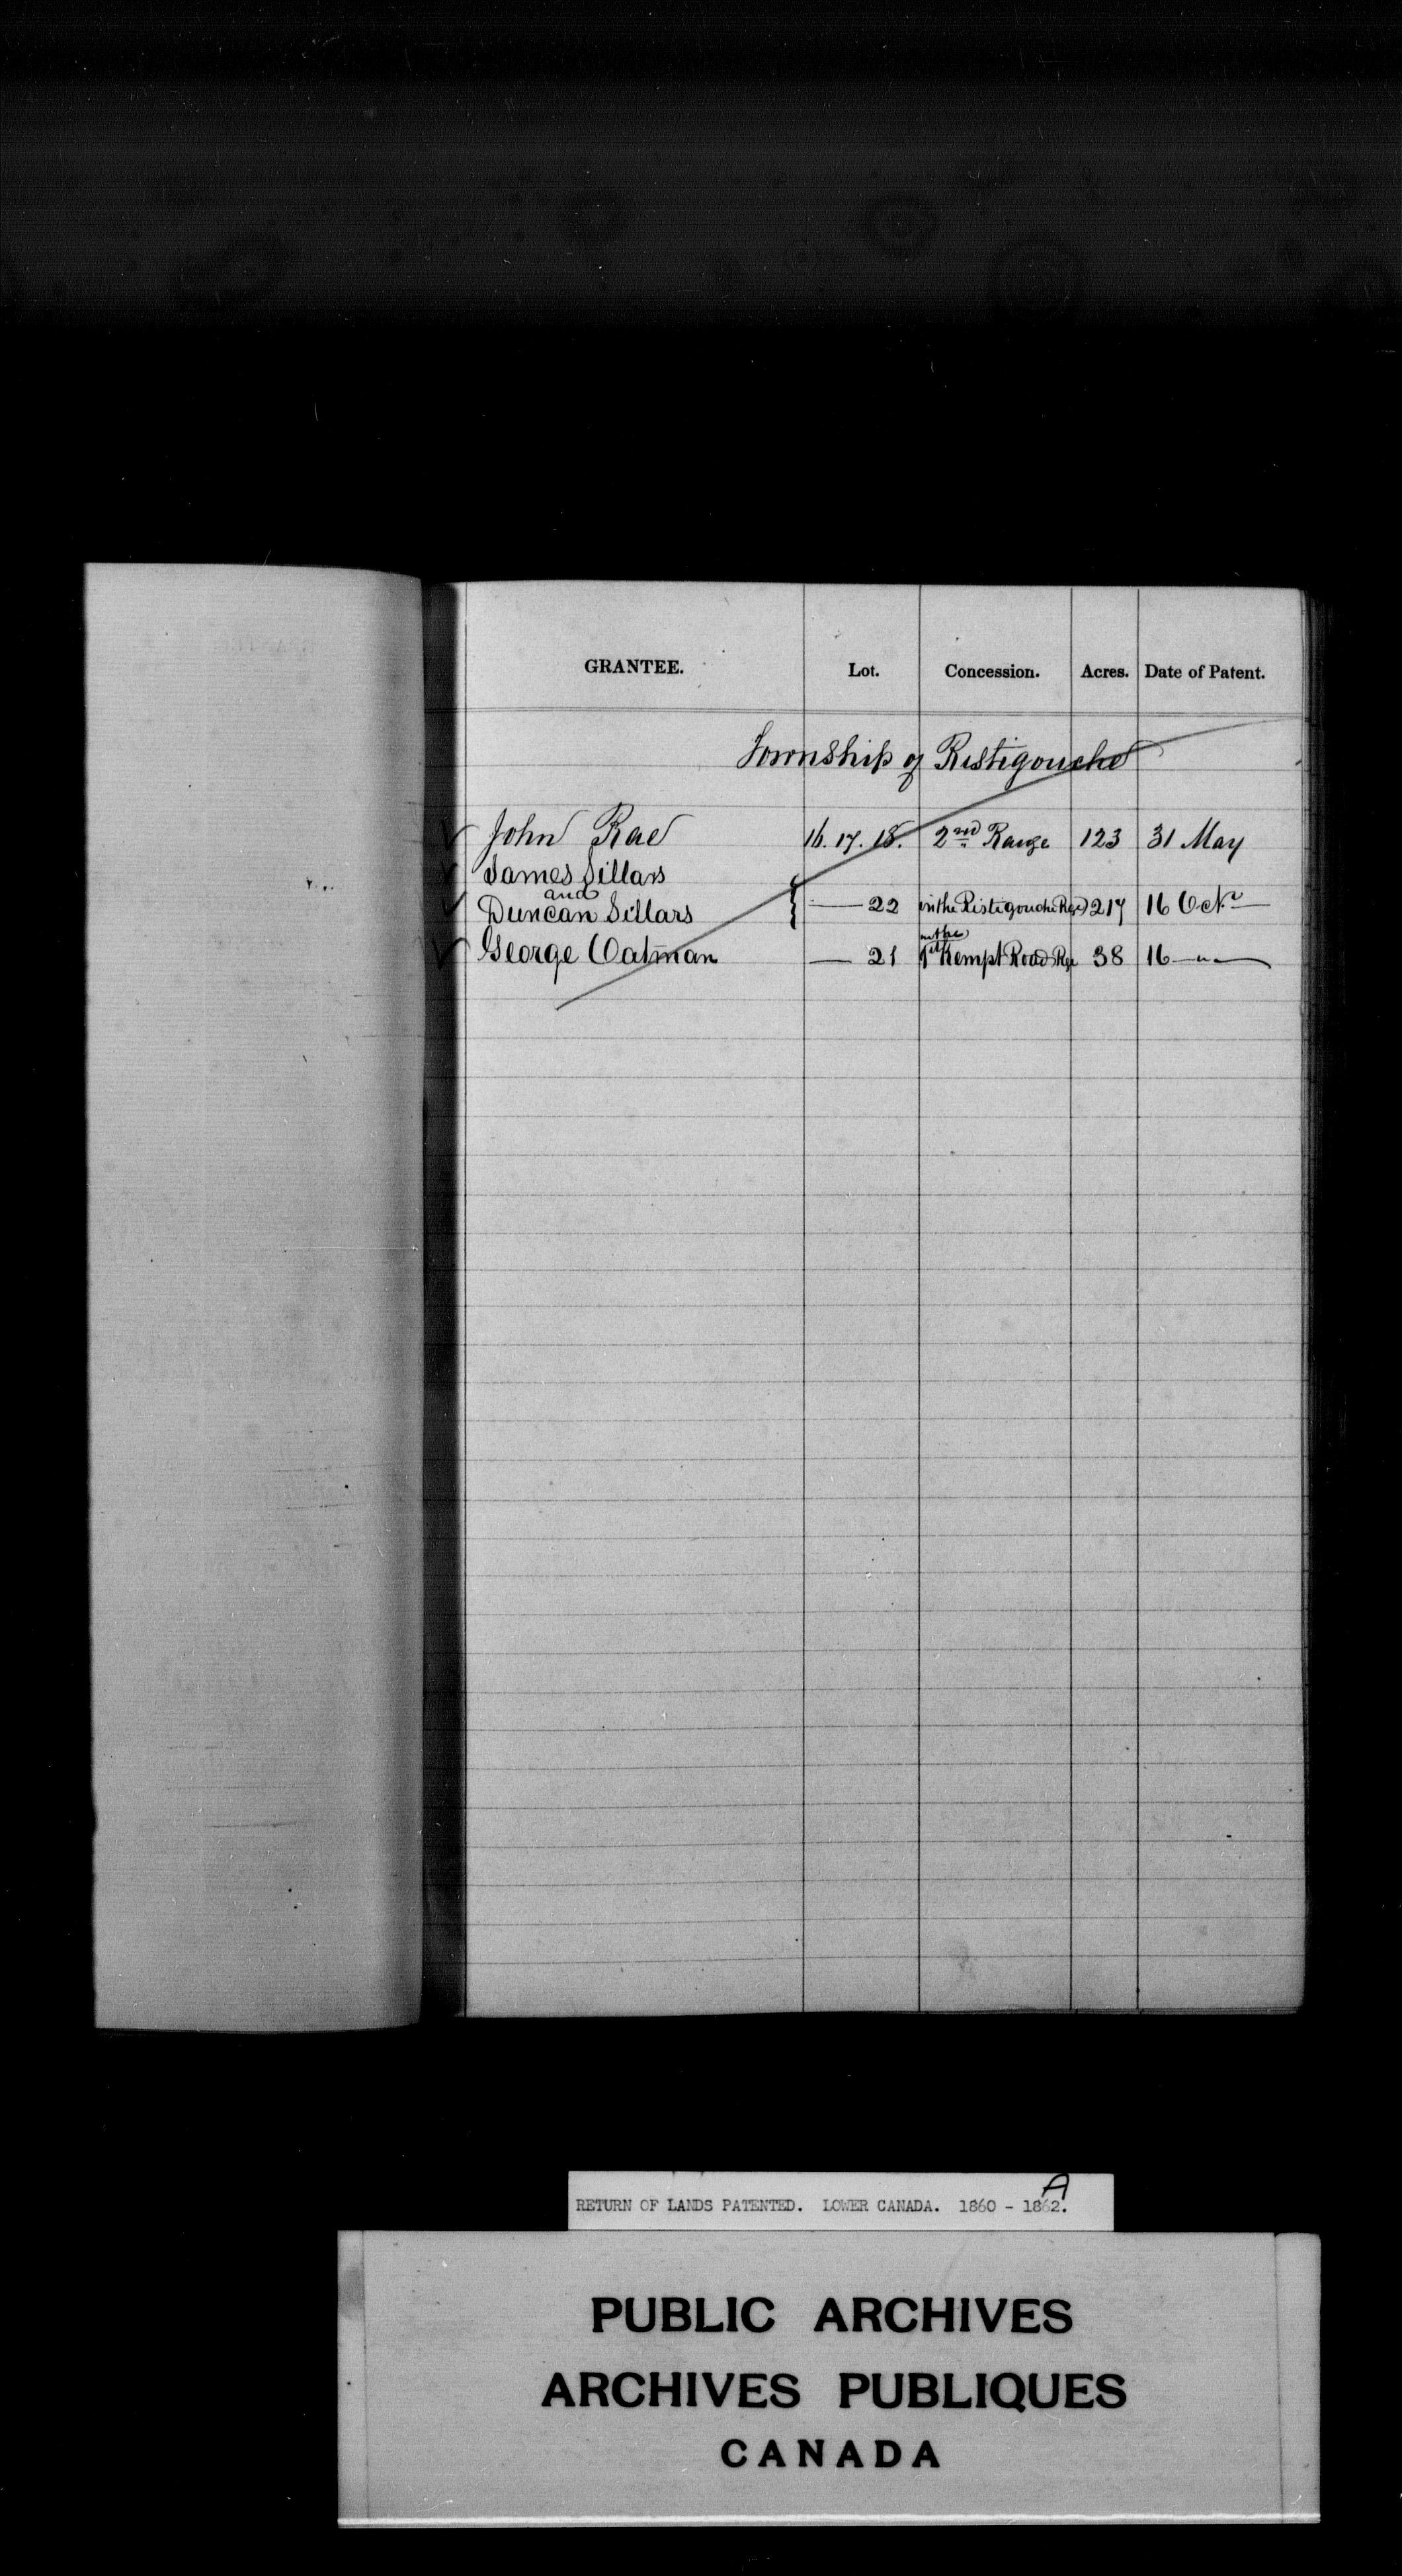 GRANTEE. Lot. Concession. Acres. Date of Patent.
Township of Ristigouche
John Rae 16. 17. 18. 2nd Range 123 31 May
James Sillars
and
Duncan Sillars } — 22 in the Ristigouche Rge 217 16 Octr —
in the
George Oatman — 21 1st Kempt Road Rge 38 16 — " —
RETURN OF LANDS PATENTED. LOWER CANADA. 1860 - 1862.
A
PUBLIC ARCHIVES
ARCHIVES PUBLIQUES
CANADA